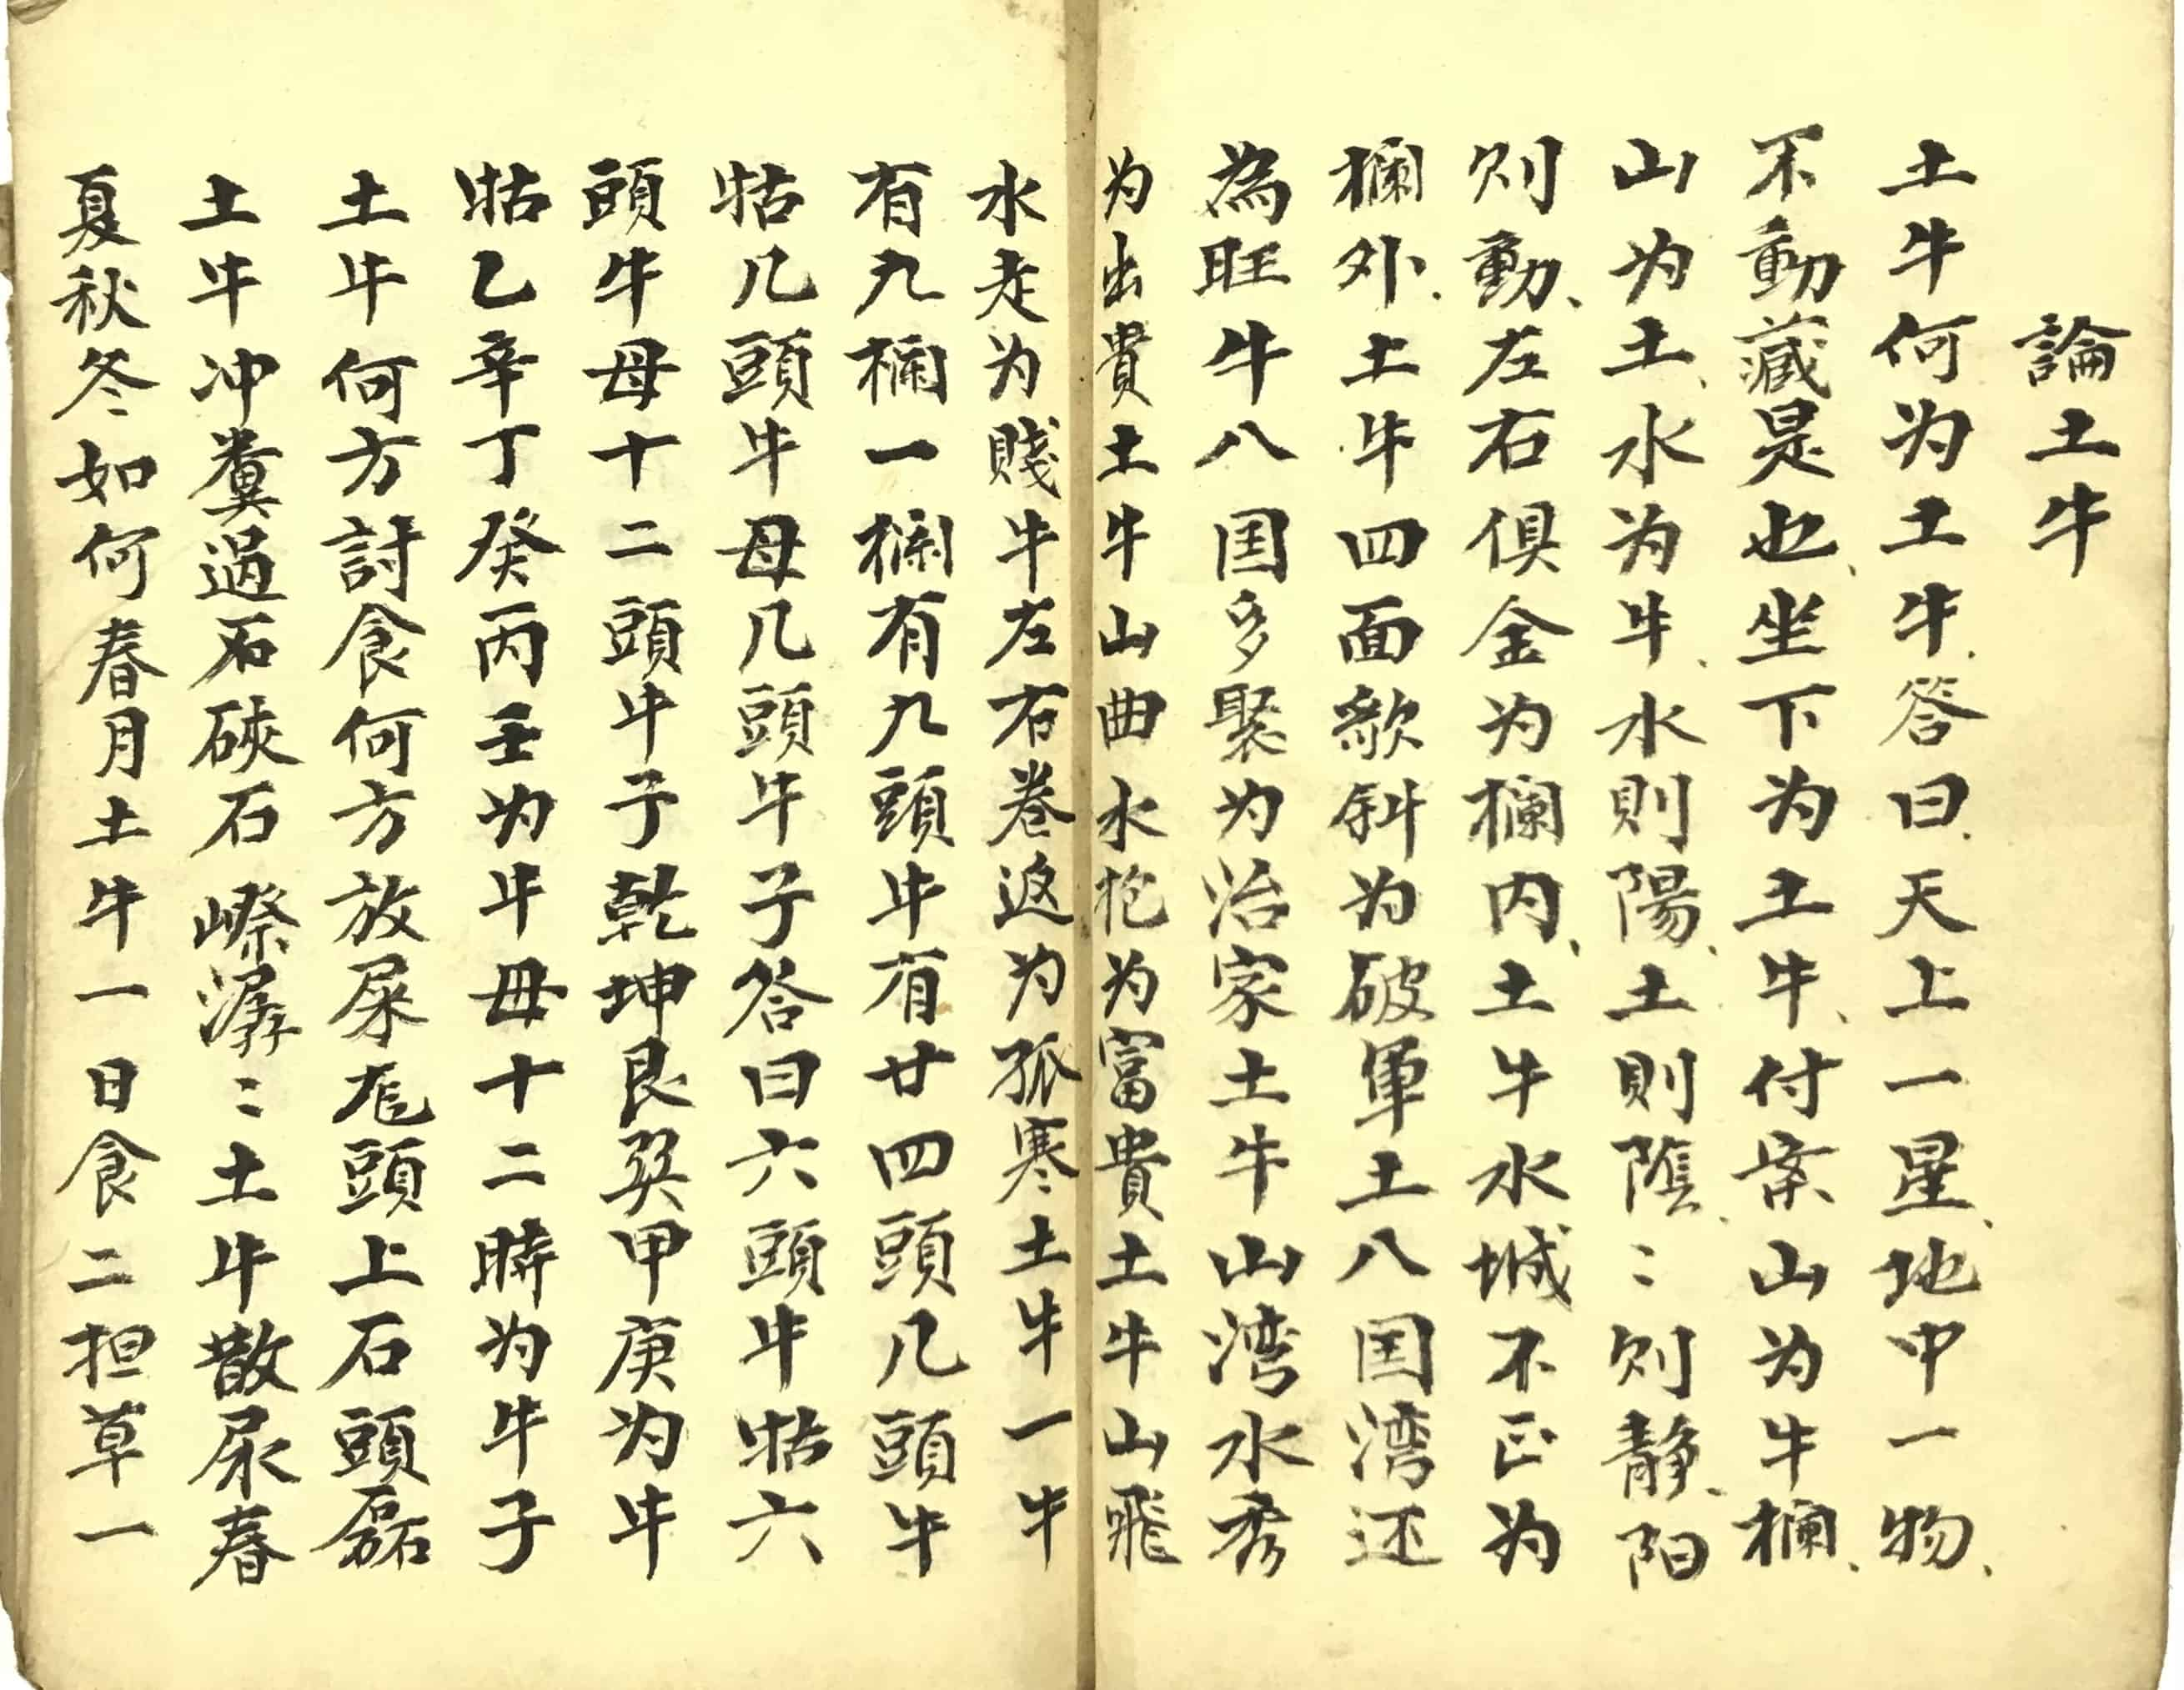 論土牛
土牛何为土牛答曰天上一星地中一物
不動藏是也坐下为土牛付案山为牛欄
山为土水为牛水則陽土則陰〻则静阳
则動左右俱金为欄内土牛水城不正为
欄外土牛四面欹斜为破軍土八国湾还
為旺牛八国多聚为治家土牛山湾水秀
为出貴土牛山曲水抱为富貴土牛山飛
水走为賤牛左右卷返为孤寒土牛一牛
有九欄一欄有九頭牛有廿四頭几頭牛
牯几頭牛母几頭牛子答曰六頭牛牯六
頭牛母十二頭牛子乾坤艮巽甲庚为牛
牯乙辛丁癸丙壬为牛母十二時为牛子
土牛何方討食何方放屎庀頭上石頭磊
土牛冲糞過石硤石㠂潺〻土牛散尿春
夏秋冬如何春月土牛一日食二担草一